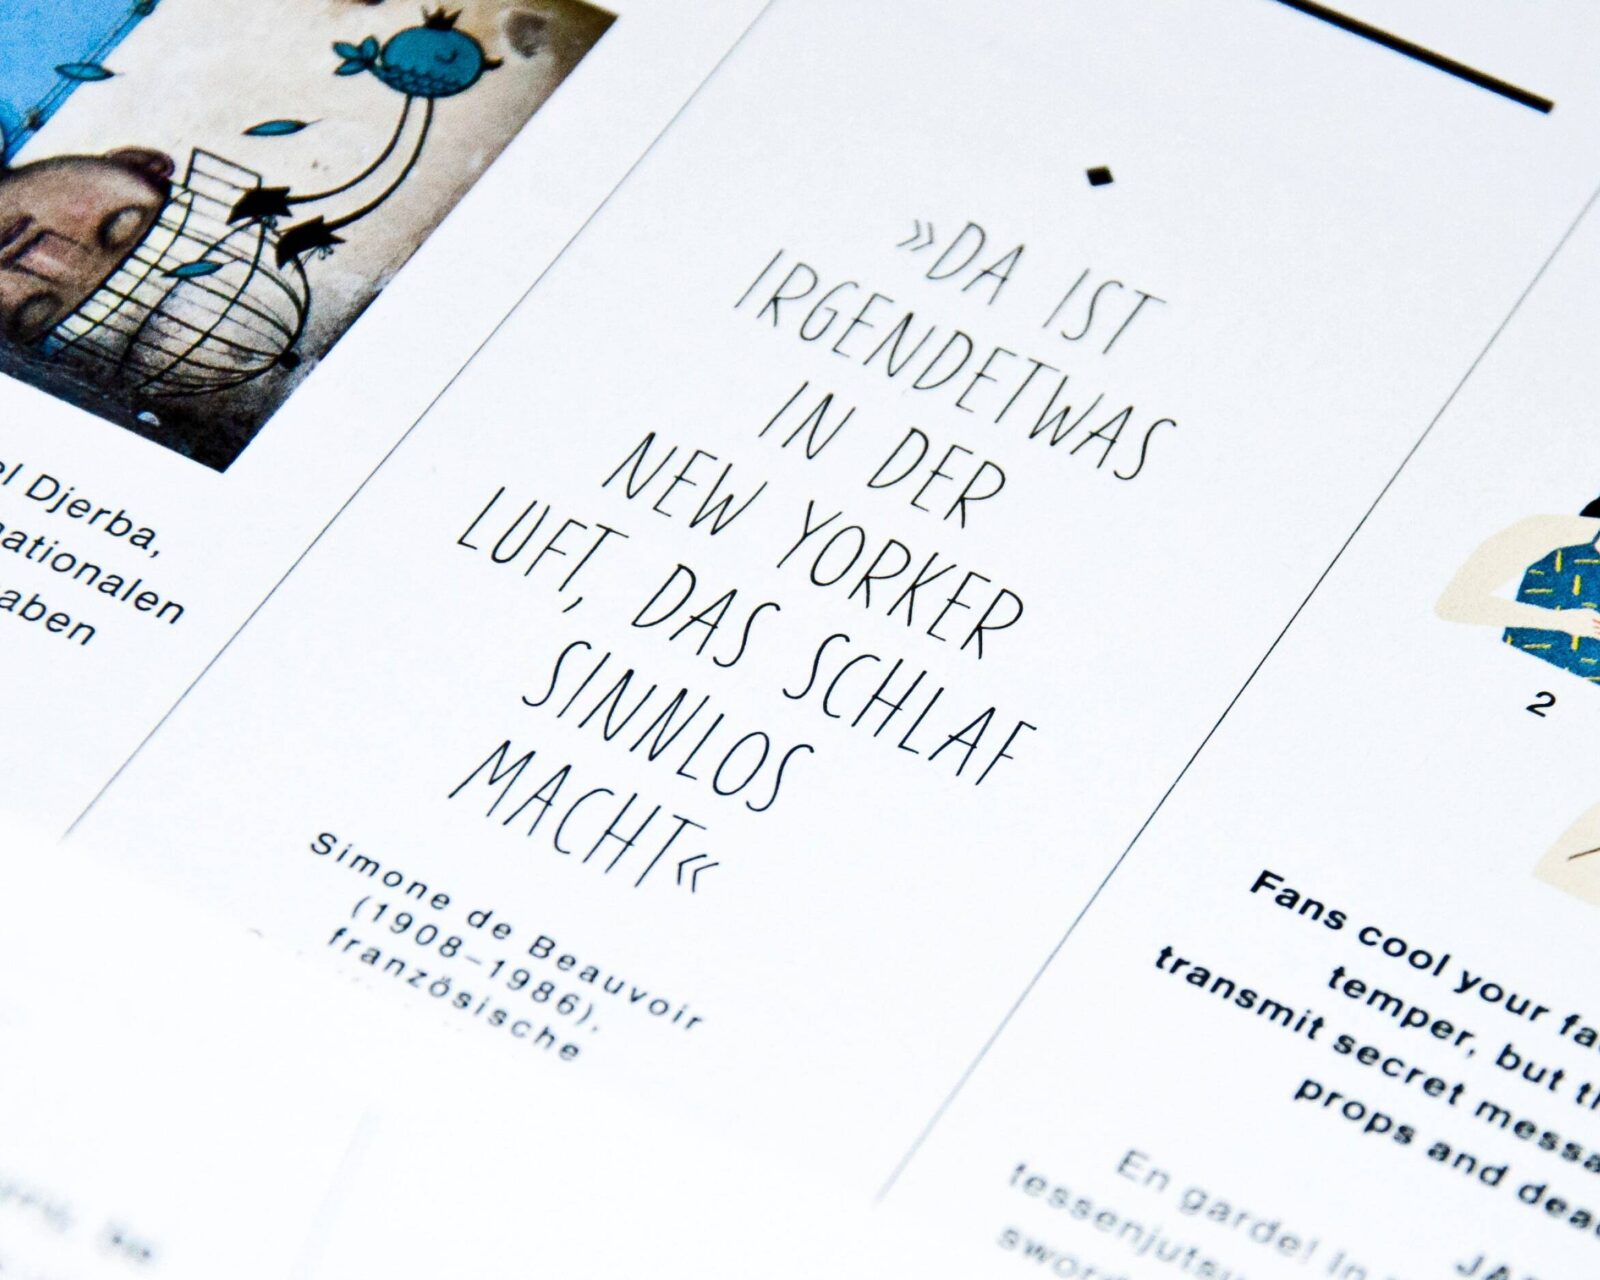 Djerba,
nationalen
»DA IST
IRGENDETWAS
IN DER
NEW YORKER
LUFT, DAS SCHLAF
SINNLOS
MACHT«
Simone de Beauvoir
(1908–1986),
französische
2
Fans cool your
temper, but
transmit secret
props and
En garde! In
tessenjutsu